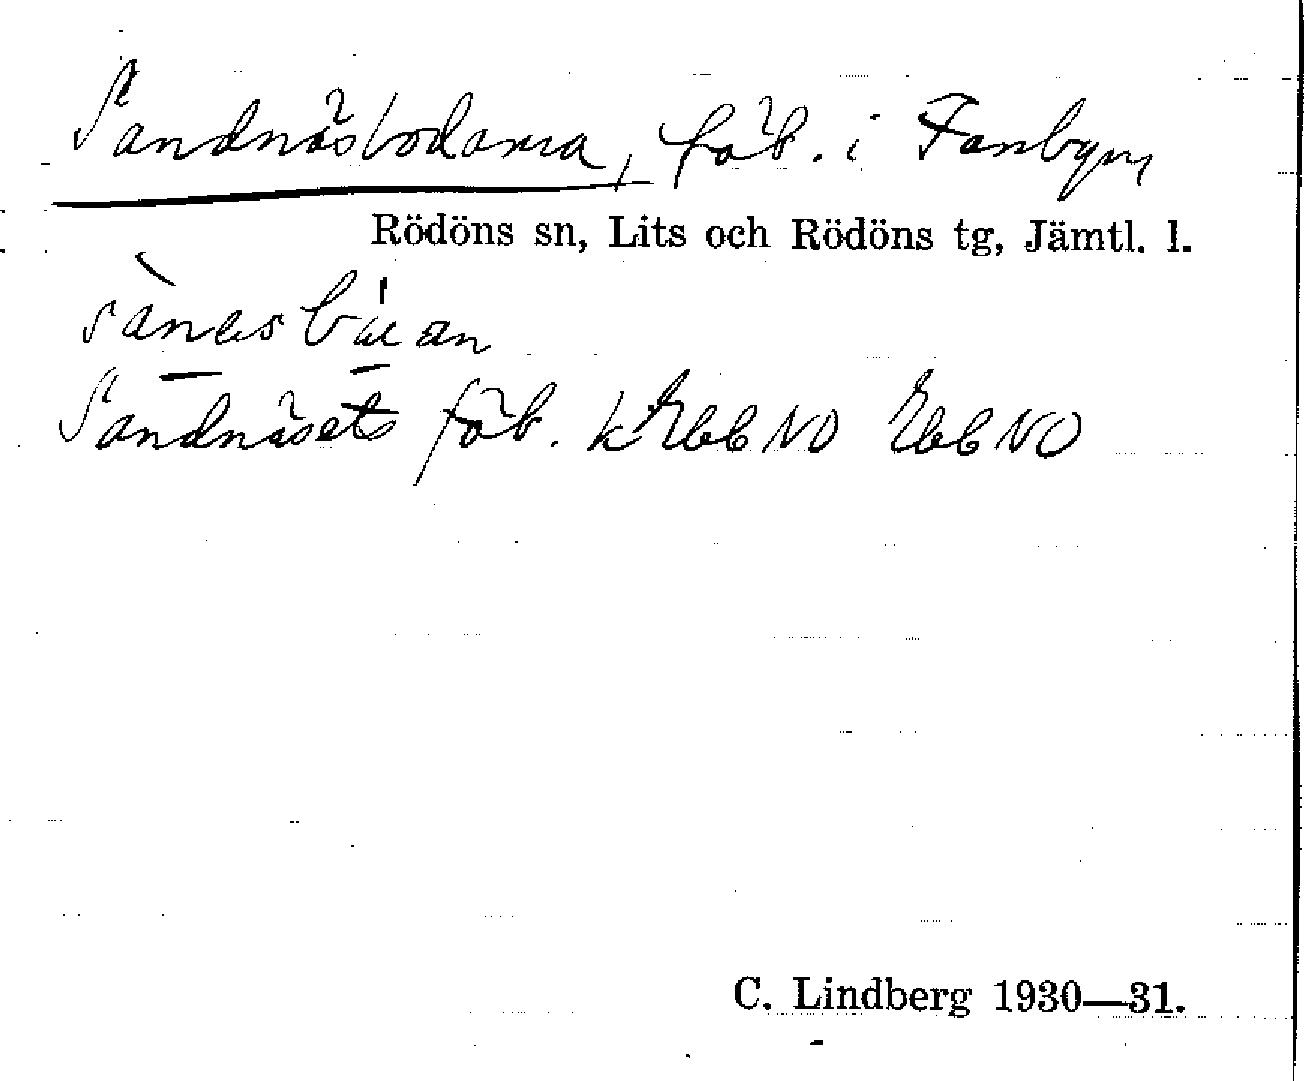 Sandnäsbodarna, fäb. i Fanbyn
Rödöns sn, Lits och Rödöns tg, Jämtl. l.
Sandnäsets fäb.
C. Lindberg 1930—31.